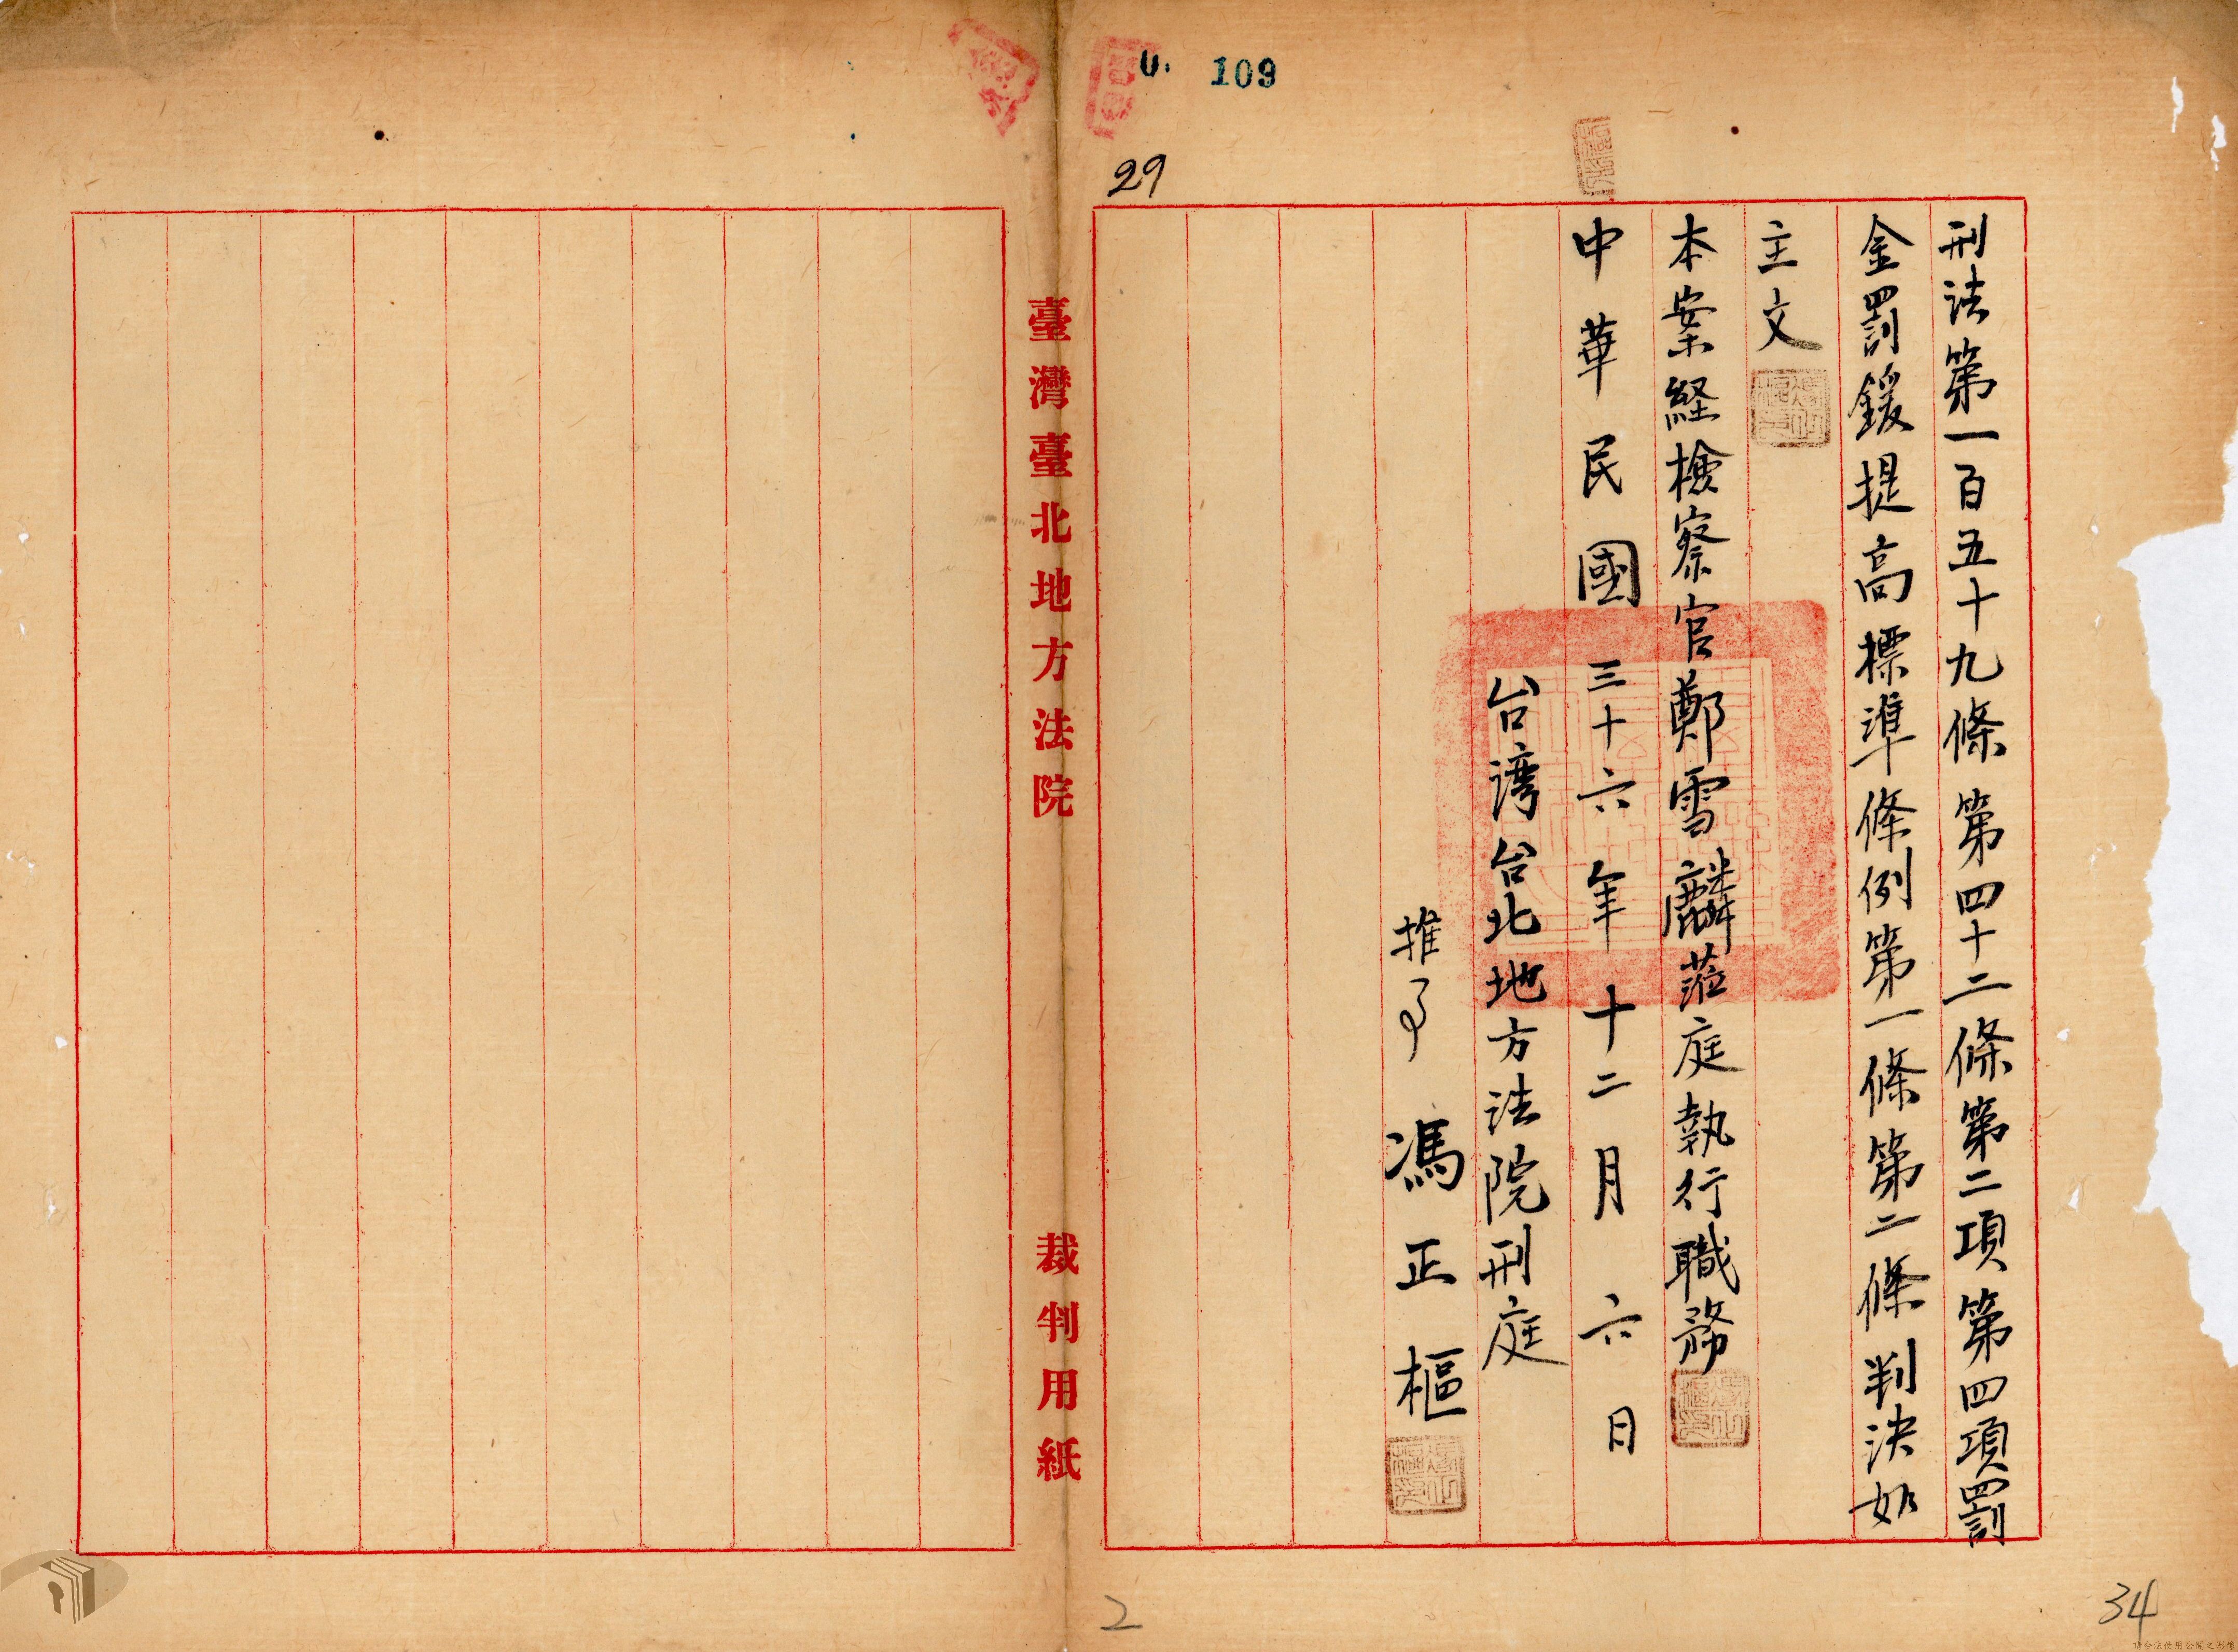 刑法第一百五十九條第四十二條第二項第四項罰
金罰鍰提高標準條例第一條第二條判決如
主文
本案経檢察官鄭雪麟蒞庭執行職務
中華民國三十六年十二月六日
台湾台北地方法院刑庭
推事 馮正樞
臺灣臺北地方法院 裁判用紙
109
29
2
34